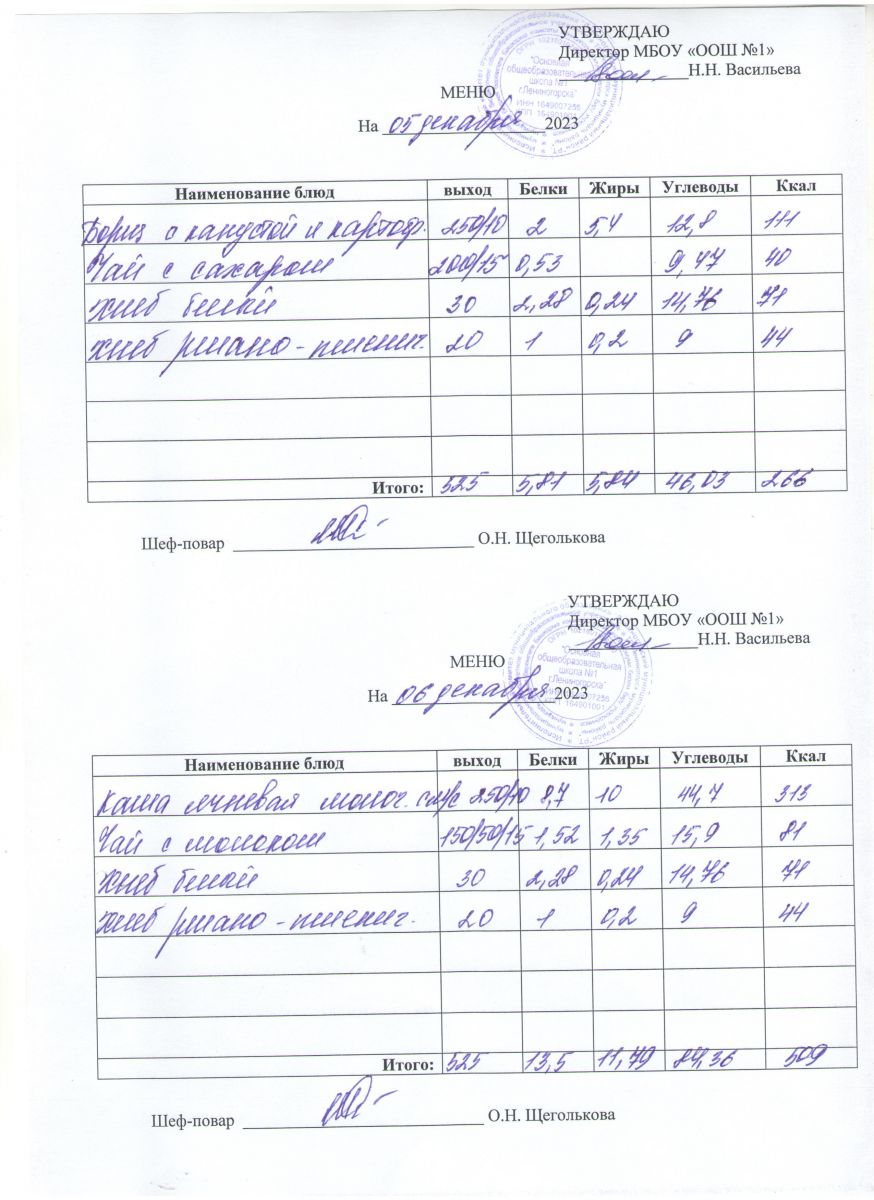 УТВЕРЖДАЮ
Директор МБОУ «ООШ №1»
Н.Н. Васильева
"Основная
общеобразовательная
школа №1
г.Лениногорска"
ИНН 1649007256
МЕНЮ
На 05 декабря 2023
Наименование блюд выход Белки Жиры Углеводы Ккал
Борщ с капустой и картоф. 250/10 2 5,4 12,8 111
Чай с сахаром 200/15 0,53 9,47 40
Хлеб белый 30 2,28 0,24 14,76 71
Хлеб ржано-пшенич. 20 1 0,2 9 44
Итого: 525 5,81 5,84 46,03 266
Шеф-повар О.Н. Щеголькова
УТВЕРЖДАЮ
Директор МБОУ «ООШ №1»
Н.Н. Васильева
"Основная
общеобразовательная
школа №1
г.Лениногорска"
164901001
МЕНЮ
На 06 декабря 2023
Наименование блюд выход Белки Жиры Углеводы Ккал
Каша ячневая молоч. с м/с 250/10 8,7 10 44,7 313
Чай с молоком 150/50/15 1,52 1,35 15,9 81
Хлеб белый 30 2,28 0,24 14,76 71
Хлеб ржано-пшенич. 20 1 0,2 9 44
Итого: 525 13,5 11,79 84,36 509
Шеф-повар О.Н. Щеголькова